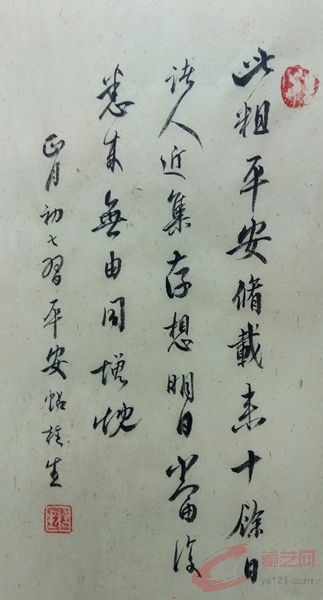 此粗平安脩載來十餘日
諸人近集存想明日當復
悉來無由同增慨
正月初七習平安帖桂生
藏艺网
ys121.com